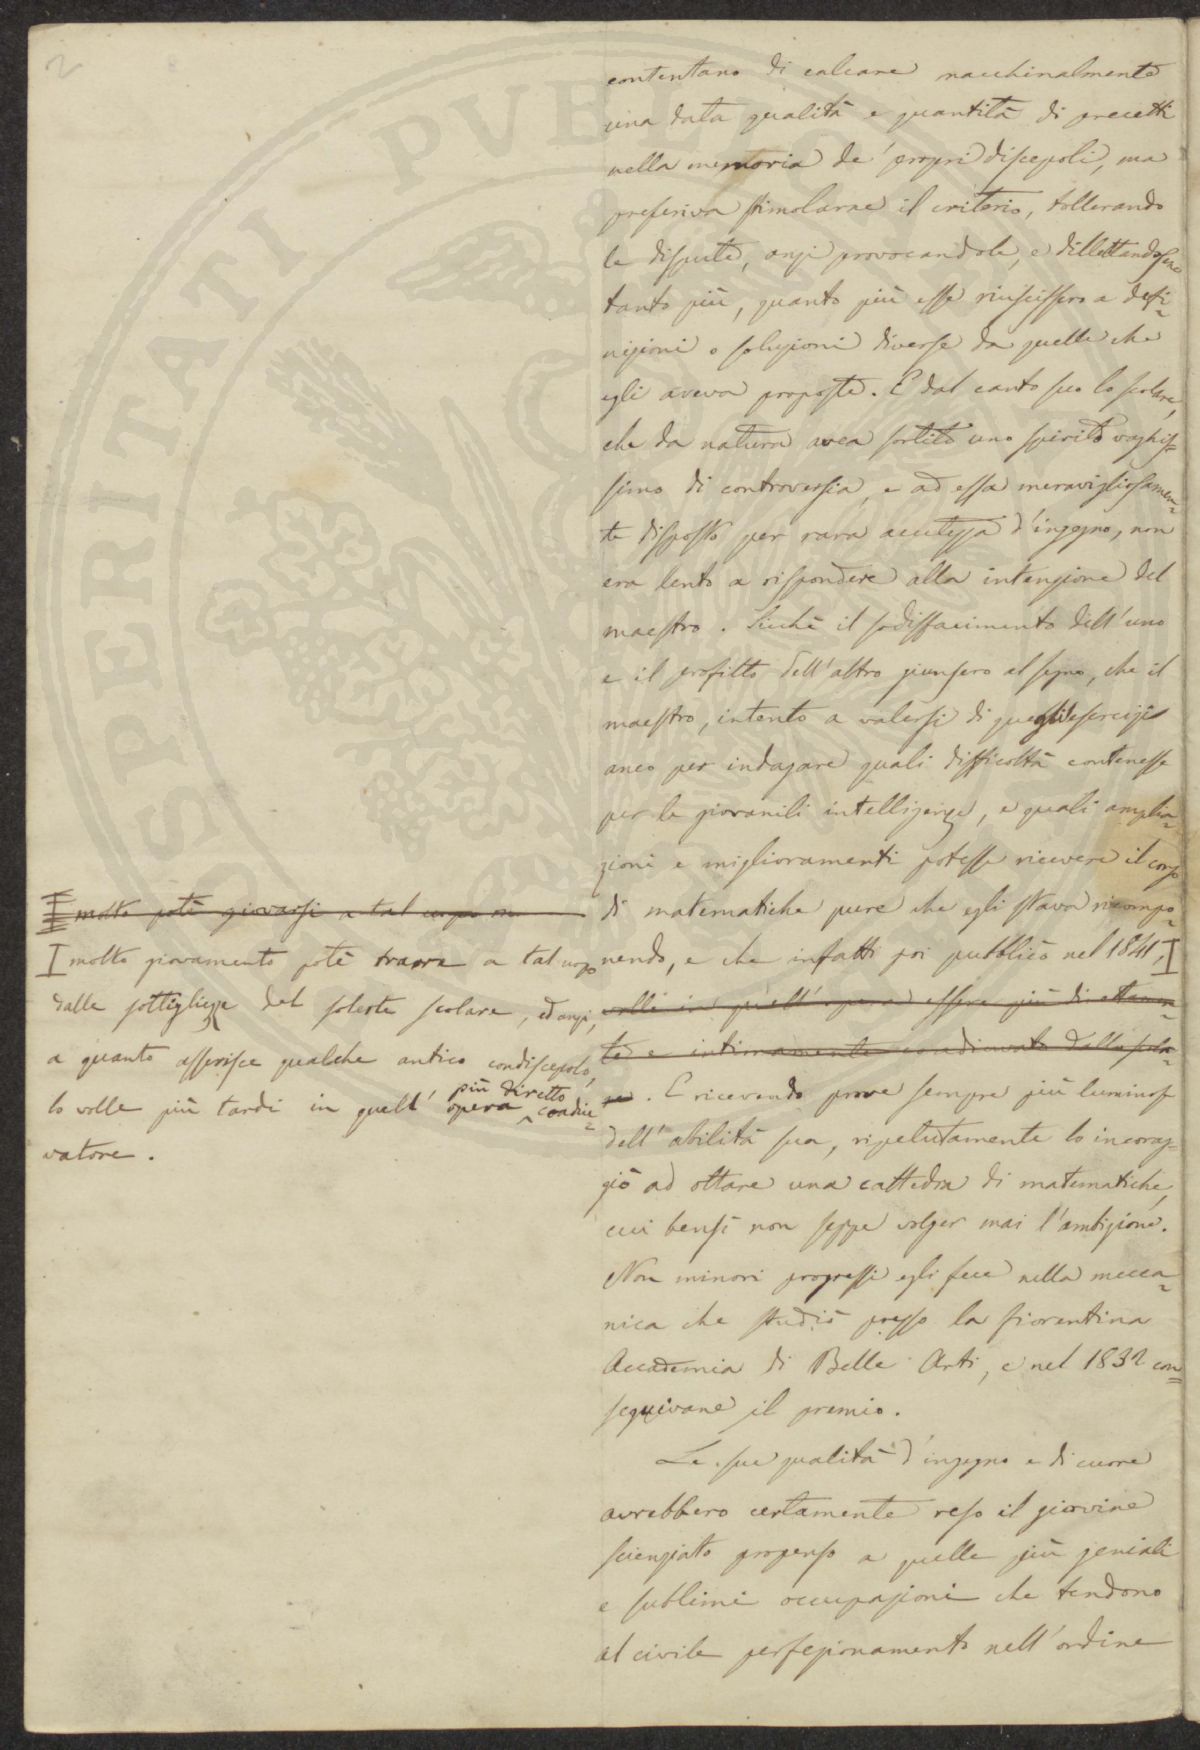 2
contentano di calcare macchinalmente
una data qualità e quantità di precetti
nella memoria de' propri discepoli, ma
preferiva stimolarne il criterio, tollerando
le dispute, anzi provocandole, e dilettandosene
tanto più, quanto più esse riuscissero a defi=
nizioni o soluzioni diverse da quelle che
egli aveva proposte. E dal canto suo lo scolare,
che da natura avea sortito uno spirito vaghis=
simo di controversia, e ad essa meravigliosamen=
te disposto per rara acutezza d'ingegno, non
era lento a rispondere alla intenzione del
maestro. Sicchè il sodisfacimento dell'uno
e il profitto dell'altro giunsero al segno, che il
maestro, intento a valersi di quegli esercizi
anco per indagare quali difficoltà contenesse
per le giovanili intelligenze, e quali amplia=
zioni e miglioramenti potesse ricevere il corso
di matematiche pure che egli stava ricompo=
nendo, e che infatti poi pubblicò nel 1841,
volle in quell'opera essere più direttamen=
te e intimamente coadiuvato dallo scola=
re. E ricevendo prove sempre più luminose
dell'abilità sua, ripetutamente lo incorag=
giò ad ottare una cattedra di matematiche,
cui bensì non seppe volger mai l'ambizione.
Non minori progressi egli fece nella mecca=
nica che studiò presso la fiorentina
Accademia di Belle Arti, e nel 1832 con=
seguivane il premio.
Le sue qualità d'ingegno e di cuore
avrebbero certamente reso il giovine
scienziato propenso a quelle più geniali
e sublimi occupazioni che tendono
al civile perfezionamento nell'ordine
molto potè giovarsi a tal uopo
molto giovamento potè trarre a tal uopo
dalle sottigliezze del solerte scolare, ed anzi,
a quanto asserisce qualche antico condiscepolo,
più diretto
lo volle più tardi in quell'opera coadiu=
vatore.
SPERITATI PVBL